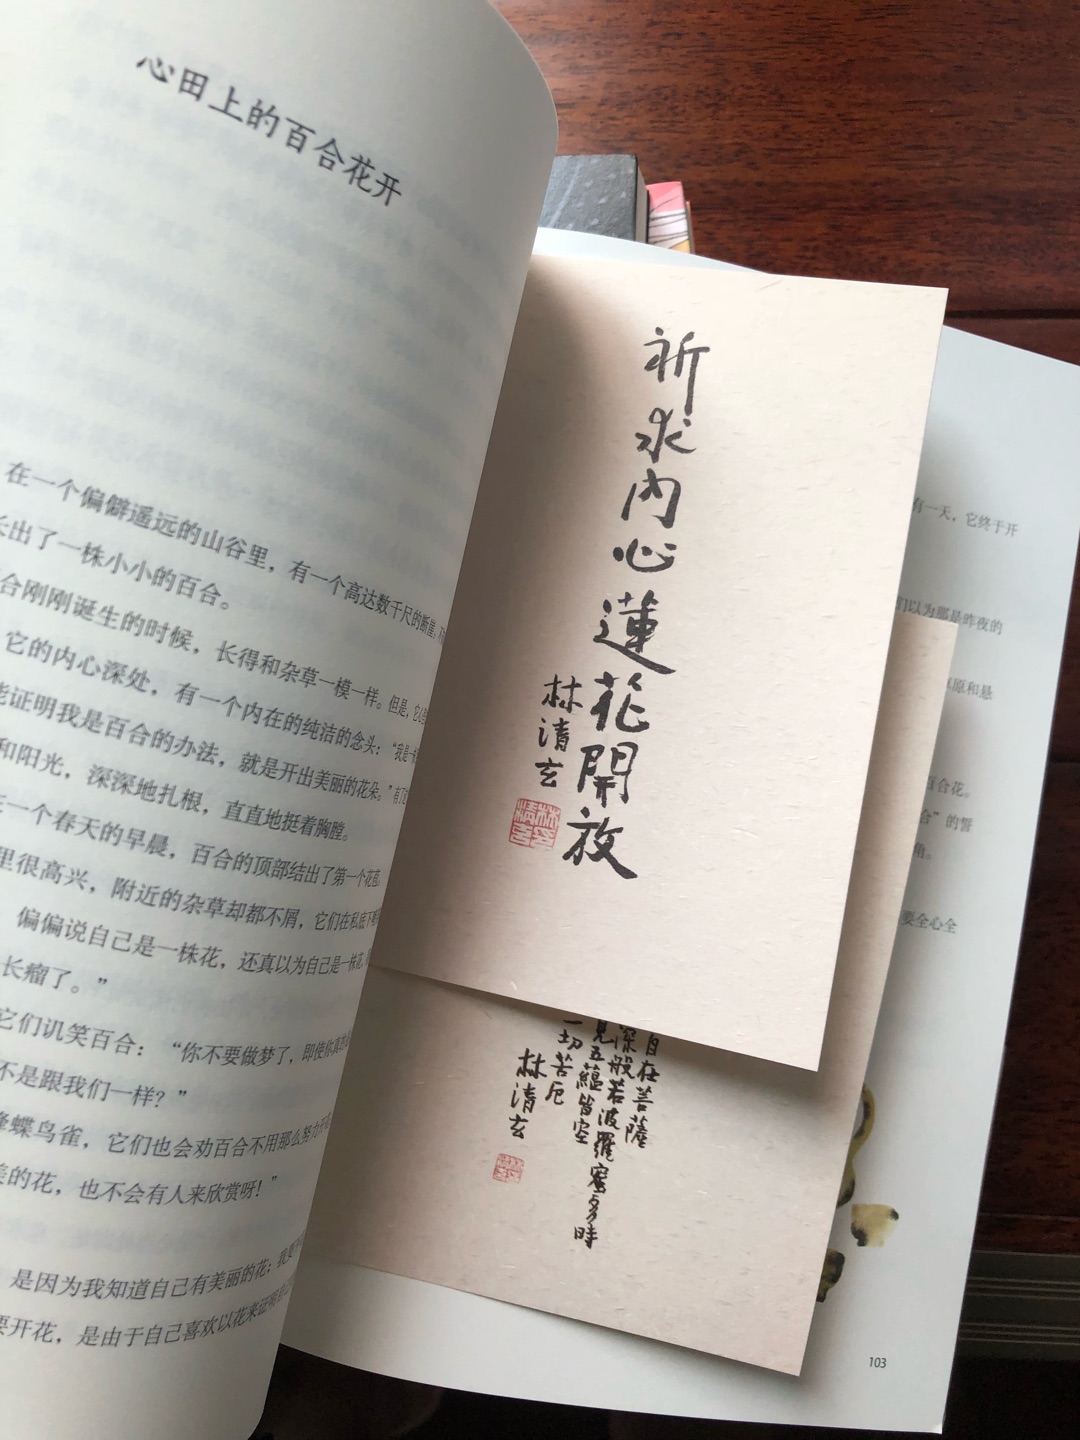 心田上的百合花开
在一个偏僻遥远的山谷里，有一个高达数千尺的断崖。不
长出了一株小小的百合。
合刚刚诞生的时候，长得和杂草一模一样。但是，它
它的内心深处，有一个内在的纯洁的念头：“我是一
能证明我是百合的办法，就是开出美丽的花朵。”有了
和阳光，深深地扎根，直直地挺着胸膛。
在一个春天的早晨，百合的顶部结出了第一个花苞。
里很高兴，附近的杂草却都不屑，它们在私底下
偏偏说自己是一株花，还真以为自己是一株花，
长瘤了。”
它们讥笑百合：“你不要做梦了，即使你真
不是跟我们一样？”
蜂蝶鸟雀，它们也会劝百合不用那么努力开
美的花，也不会有人来欣赏呀！”
是因为我知道自己有美丽的花；我
要开花，是由于自己喜欢以花来证明
祈求内心蓮花開放
林清玄
自在菩薩
深般若波羅蜜多時
見五蘊皆空
一切苦厄
林清玄
有一天，它终于开
们以为那是昨夜的
草原和悬
百合花。
合”的誓
角。
要全心全
103